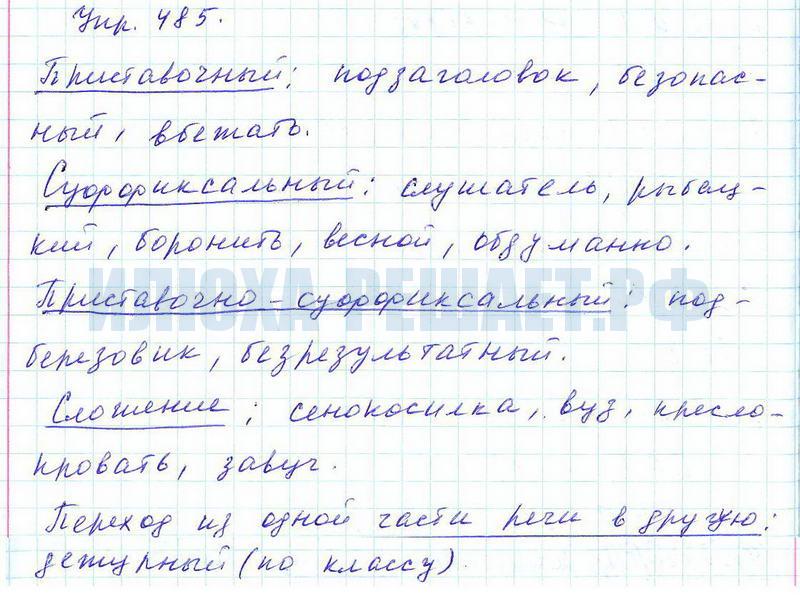 Упр. 485.
Приставочный: подзаголовок, безопас-
ный, вбежать.
Суффиксальный: слушатель, рыбац-
кий, боронить, весной, обдуманно.
ИЛЮХА-РЕШАЕТ.РФ
Приставочно-суффиксальный: под-
березовик, безрезультатный.
Сложение: сенокосилка, вуз, кресло-
кровать, завуч.
Переход из одной части речи в другую:
дежурный (по классу).